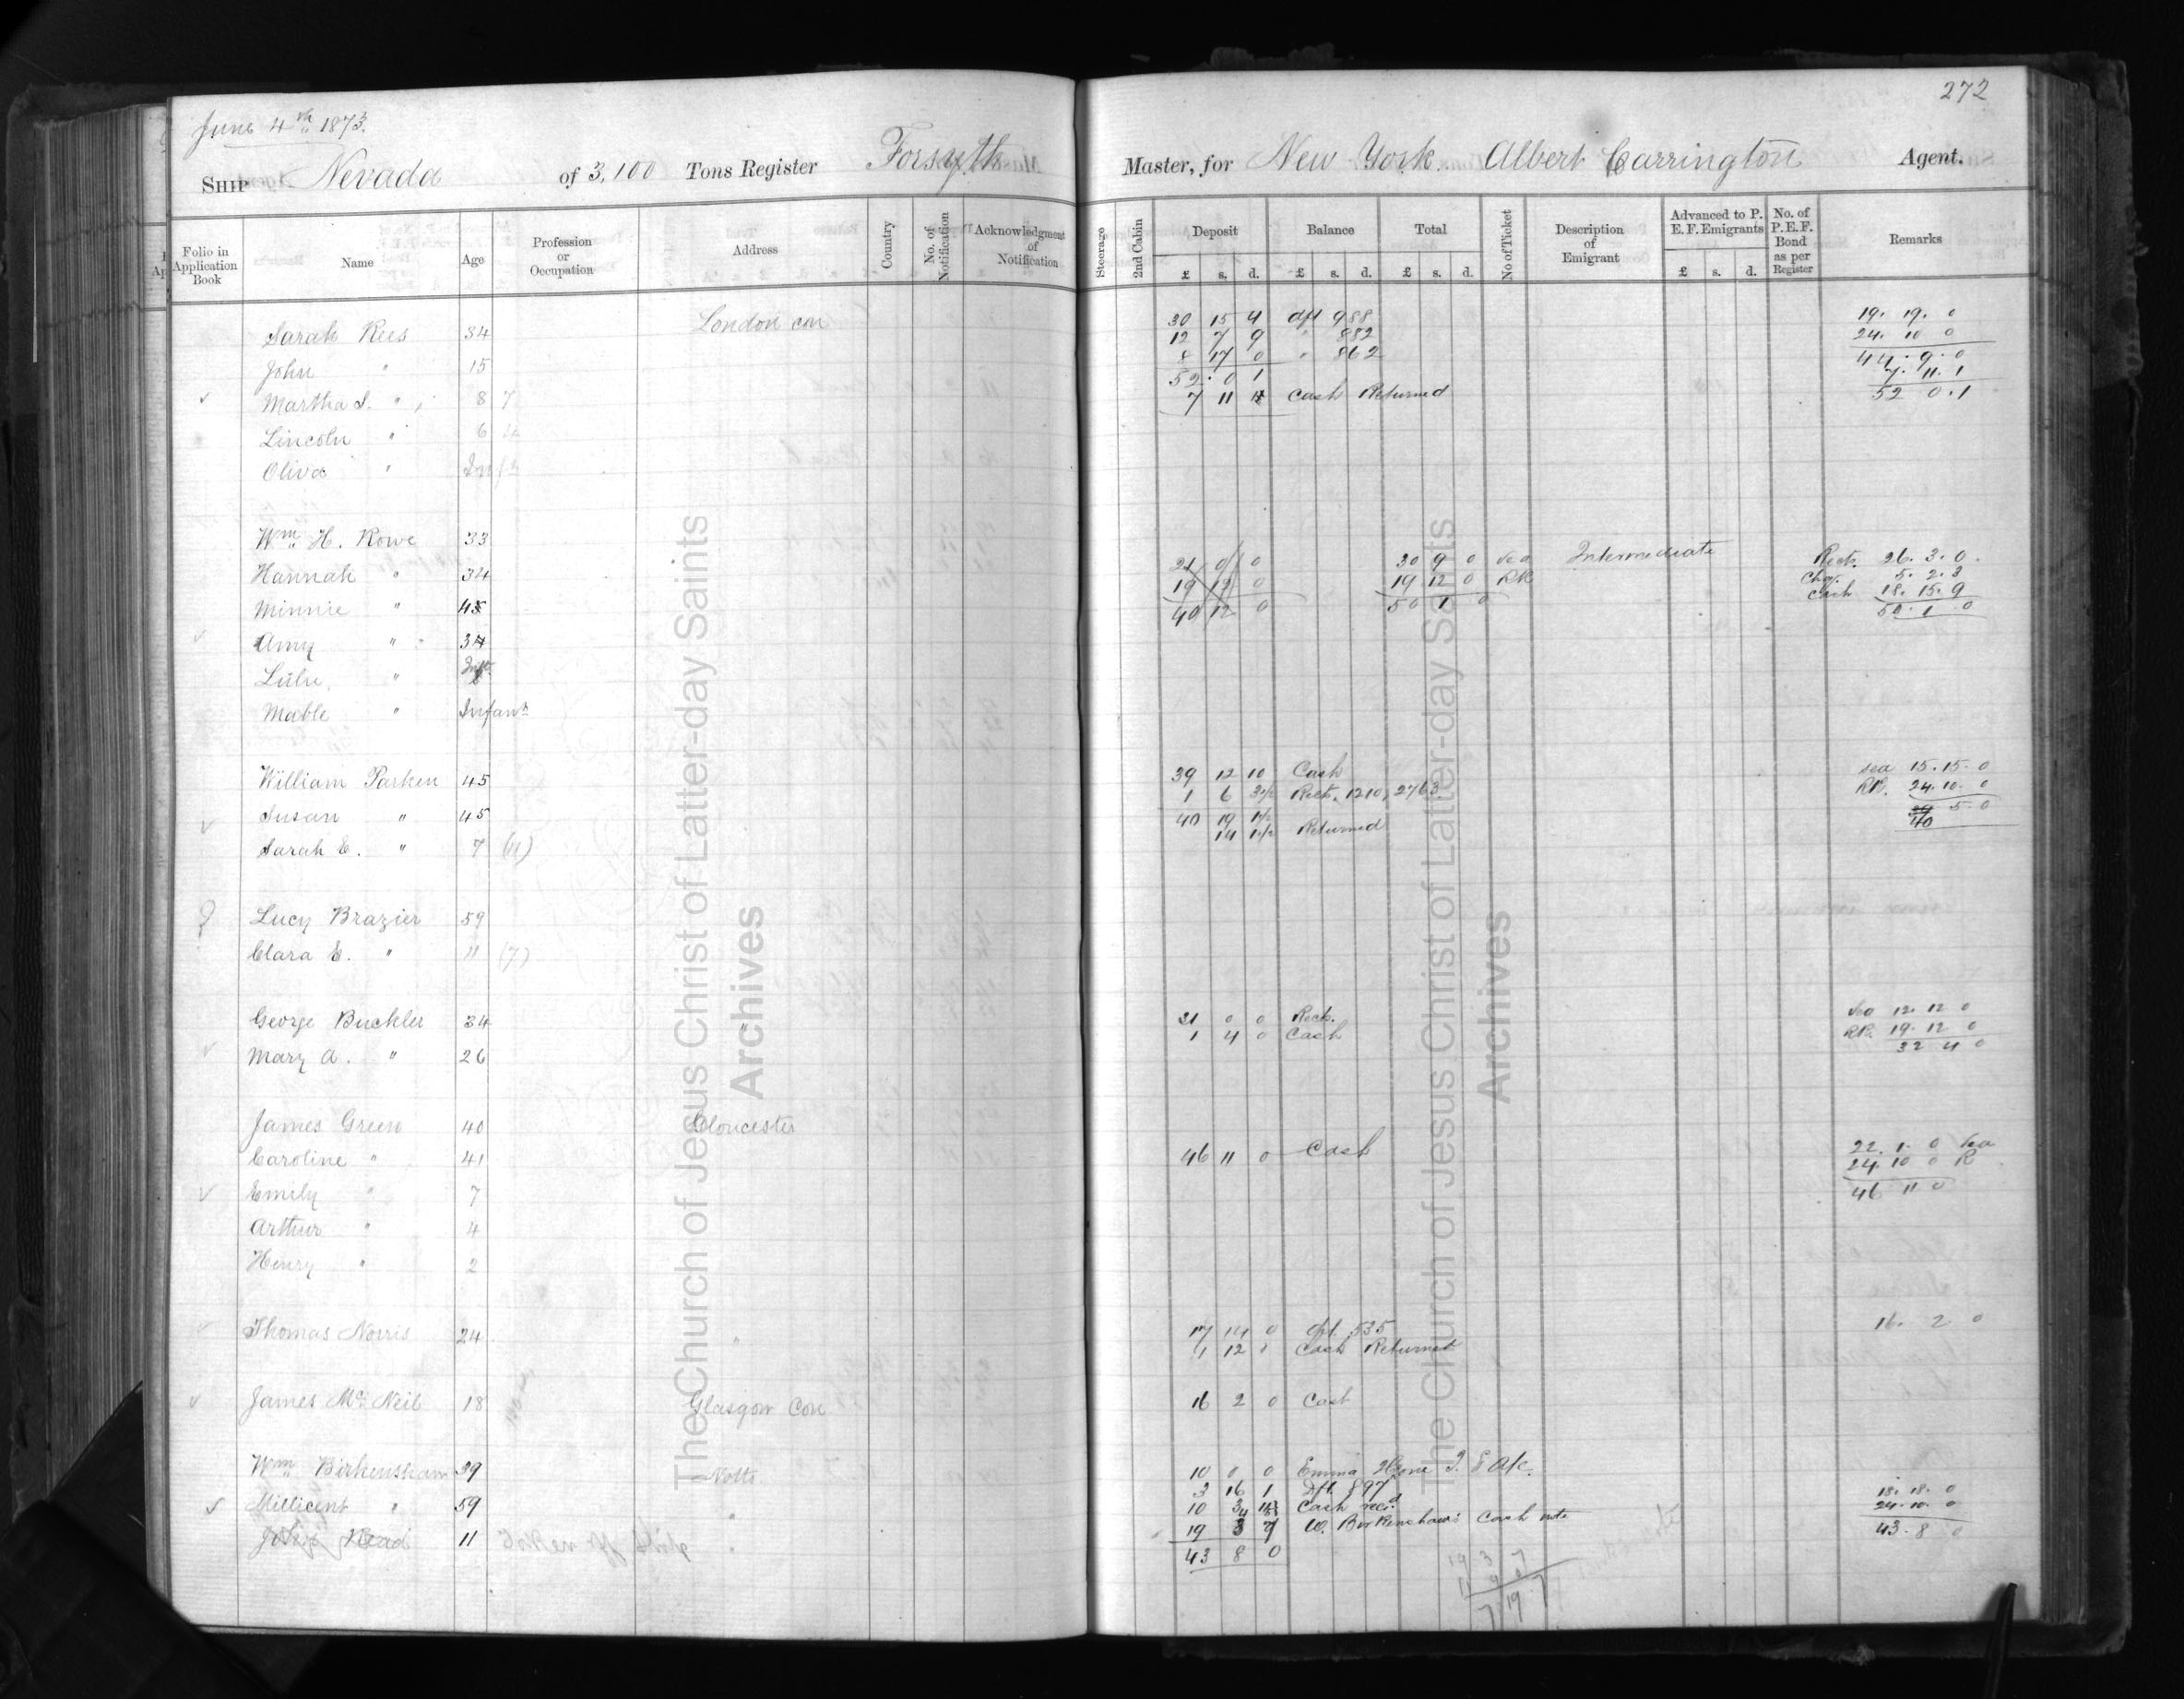 272
June 4th 1873.
SHIP Nevada of 3,100 Tons Register Forsyth Master, for New York. Albert Carrington Agent.
Folio in Application Book | Name | Age | Profession or Occupation | Address | Country | No. of Notification | Acknowledgment of Notification | Steerage | 2nd Cabin | Deposit £ s. d. | Balance £ s. d. | Total £ s. d. | No of Ticket | Description of Emigrant | Advanced to P. E. F. Emigrants £ s. d. | No. of P.E.F. Bond as per Register | Remarks
Sarah Rees 34 London con 30 15 4 dft 988 19. 19. 0
12 7 9 " 882 24. 10 0
John " 15 8 17 0 " 862 44. 9. 0
52. 0 1 7. 11. 1
✓ Martha S. " 8 7 7 11 Cash Returned 52 0. 1
Lincoln " 6
Oliva " Inf
Wm. H. Rowe 33 21 0 0 30 9 0 Sea Intermediate Rect. 26. 3. 0.
Hannah " 34 19 12 0 19 12 0 RR Chq. 5. 2. 3
Minnie " 40 12 0 50 1 0 Cash 18. 15. 9
50. 1 0
✓ Amy "
Lulu "
Mable " Infant
William Parken 45 39 12 10 Cash sea 15. 15. 0
1 6 3½ Rect. 1210, 2763 RR. 24. 10. 0
✓ Susan " 45 40 19 1½ 40 5 0
14 1½ Returned
Sarah E. " 7 (11)
Lucy Brazier 59
Clara E. " 11 (7)
George Buckler 34 31 0 0 Rect. Sea 12. 12 0
✓ Mary A. " 26 1 4 0 Cash RR. 19. 12 0
32 4 0
James Green 40 Gloucester
Caroline " 41 46 11 0 Cash 22. 1. 0 Sea
24. 10 0 R
✓ Emily " 7 46 11 0
Arthur " 4
Henry " 2
✓ Thomas Norris 24 " 17 14 0 dft. 535 16. 2 0
1 12 0 Cash Returned
✓ James Mc Neil 18 Glasgow Con 16 2 0 Cash
Wm. Birkenshaw 39 Notts. 10 0 0 Emma
3 16 1 Dft. 897 18. 18. 0
✓ Millicent " 59 " 10 Cash recd 24. 10. 0
Read 11 " 19 3 7 W. Birkenshaw's Cash note 43. 8 0
43 8 0
19 3 7
7 19 7
The Church of Jesus Christ of Latter-day Saints
Archives
The Church of Jesus Christ of Latter-day Saints
Archives